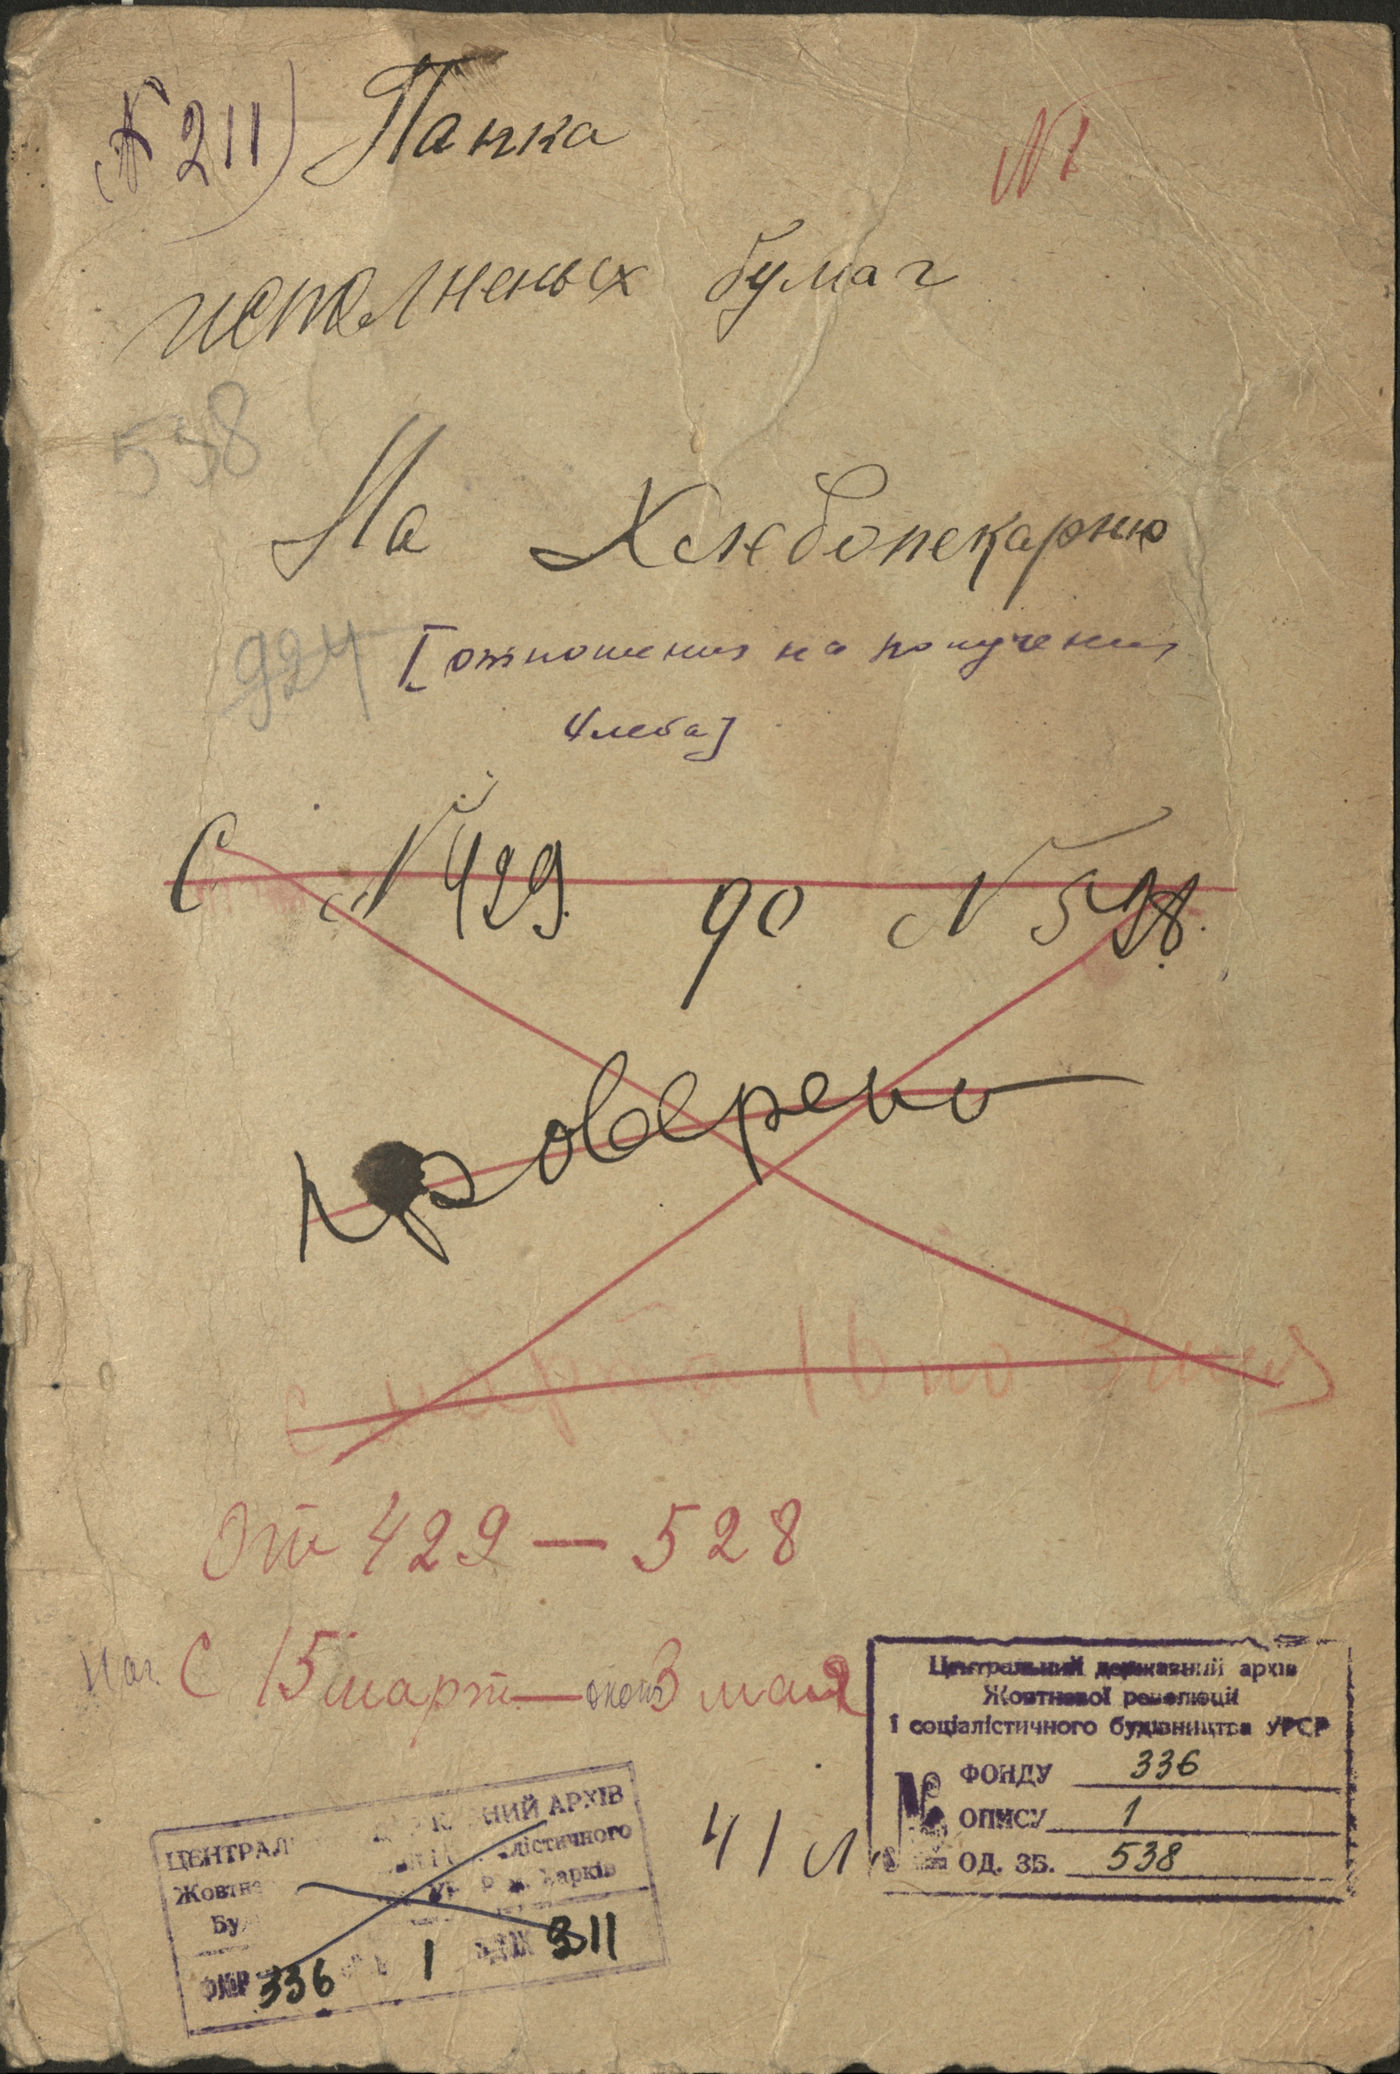 № 211) Папка
№ 1
исполненых бумаг
538
На Хлебопекарню
924
[отношения на получения
хлеба]
С № 429 до № 528.
проверено
с марта 16 по 3 мая
От 429 — 528
С 15 март — 3 мая
41 л.
Центральний державний архів
Жовтневої революції
і соціалістичного будівництва УРСР
№ ФОНДУ 336
ОПИСУ 1
ОД. ЗБ. 538
АРХІВ
Харків
336 1 311